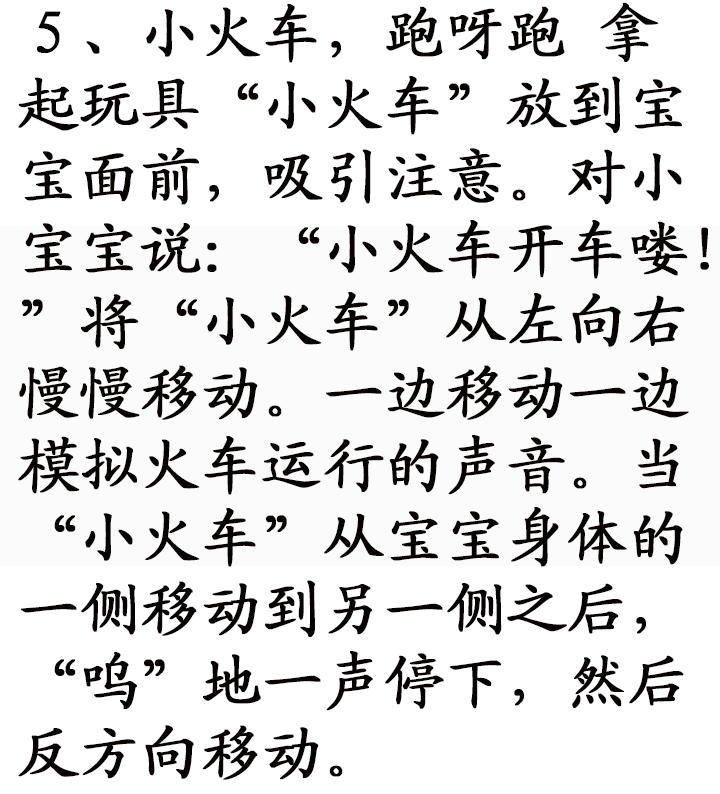 5、小火车，跑呀跑 拿
起玩具“小火车”放到宝
宝面前，吸引注意。对小
宝宝说： “小火车开车喽！
”将“小火车”从左向右
慢慢移动。一边移动一边
模拟火车运行的声音。当
“小火车”从宝宝身体的
一侧移动到另一侧之后，
“呜”地一声停下，然后
反方向移动。